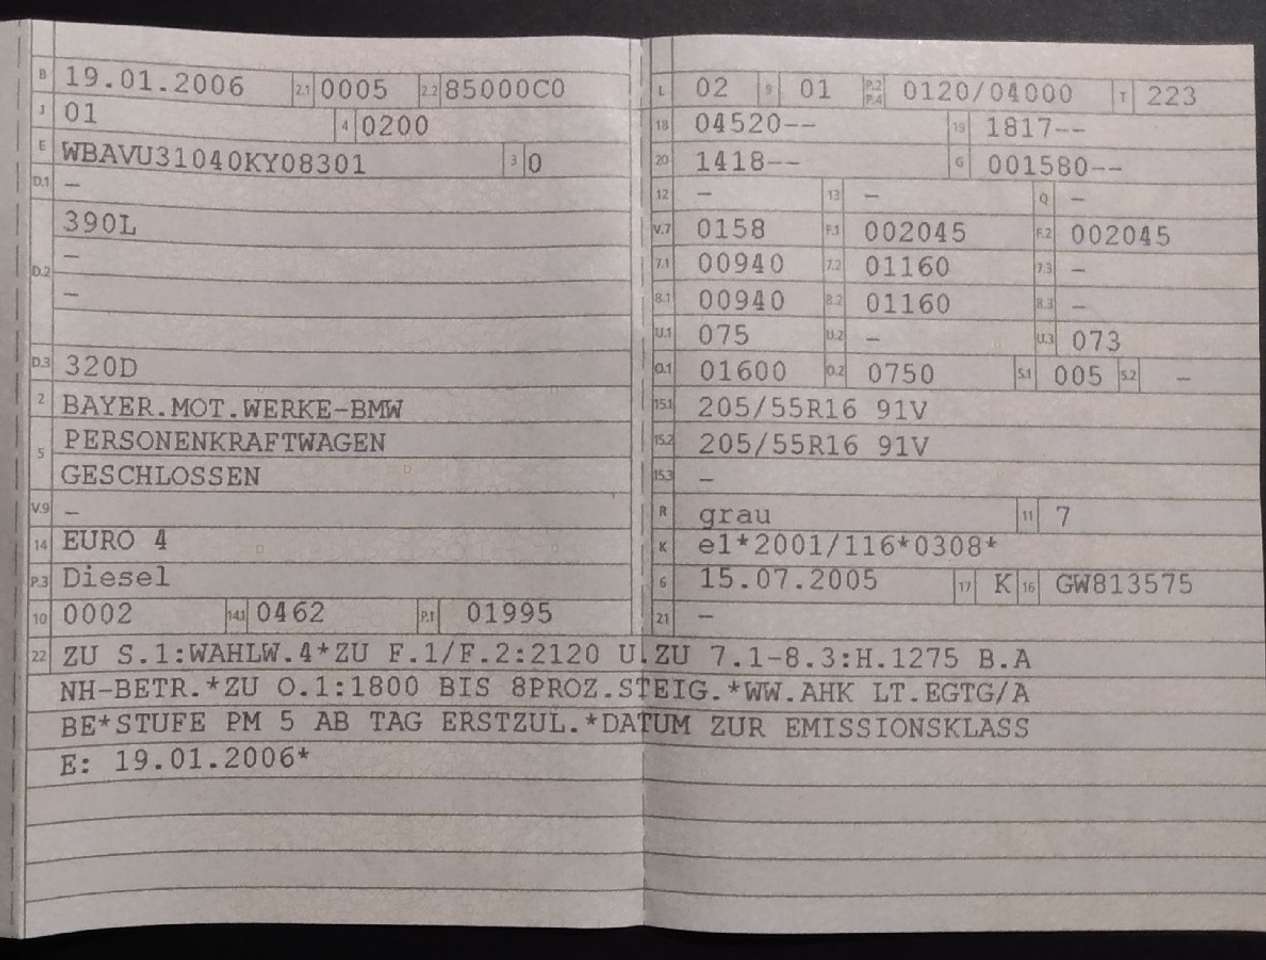 B 19.01.2006 2.1 0005 2.2 85000C0
J 01 4 0200
E WBAVU31040KY08301 3 0
D.1 –
390L
–
D.2
–
D.3 320D
2 BAYER.MOT.WERKE-BMW
5 PERSONENKRAFTWAGEN
GESCHLOSSEN
V.9 –
14 EURO 4
P.3 Diesel
10 0002 14.1 0462 P.1 01995
L 02 9 01 P.2 P.4 0120/04000 T 223
18 04520-- 19 1817--
20 1418-- G 001580--
12 – 13 – Q –
V.7 0158 F.1 002045 F.2 002045
7.1 00940 7.2 01160 7.3 –
8.1 00940 8.2 01160 8.3 –
U.1 075 U.2 – U.3 073
O.1 01600 O.2 0750 S.1 005 S.2 –
15.1 205/55R16 91V
15.2 205/55R16 91V
15.3 –
R grau 11 7
K e1*2001/116*0308*
6 15.07.2005 17 K 16 GW813575
21 –
22 ZU S.1:WAHLW.4*ZU F.1/F.2:2120 U.ZU 7.1-8.3:H.1275 B.A
NH-BETR.*ZU O.1:1800 BIS 8PROZ.STEIG.*WW.AHK LT.EGTG/A
BE*STUFE PM 5 AB TAG ERSTZUL.*DATUM ZUR EMISSIONSKLASS
E: 19.01.2006*